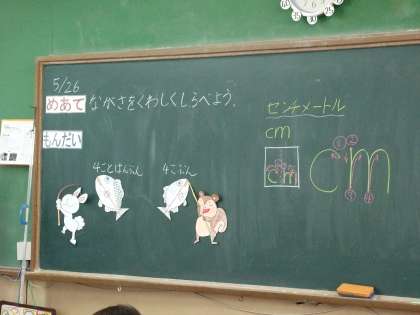 5/26
めあて ながさをくわしくしらべよう。
もんだい
4ことはんぶん
4こぶん
センチメートル
cm
cm
cm
① ②
③ ④